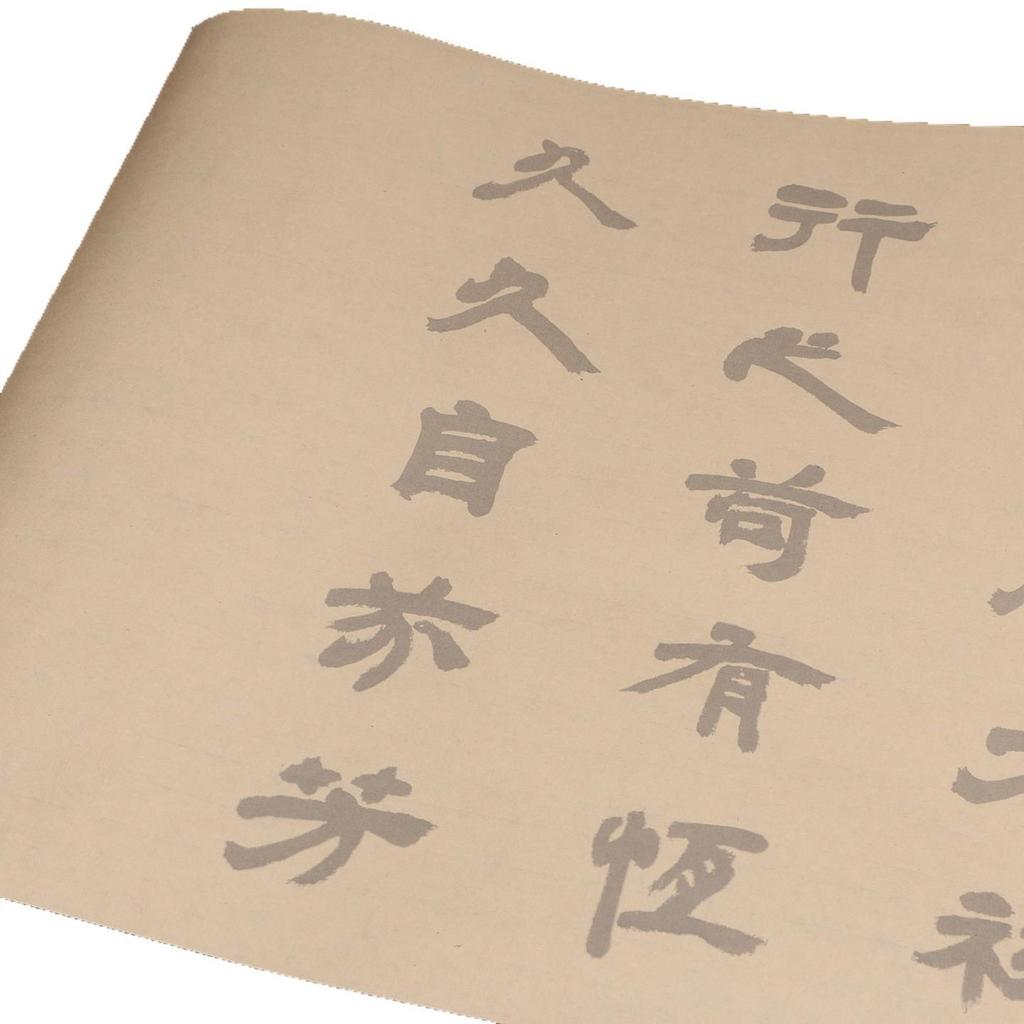 行之苟有恆
久久自芬芳